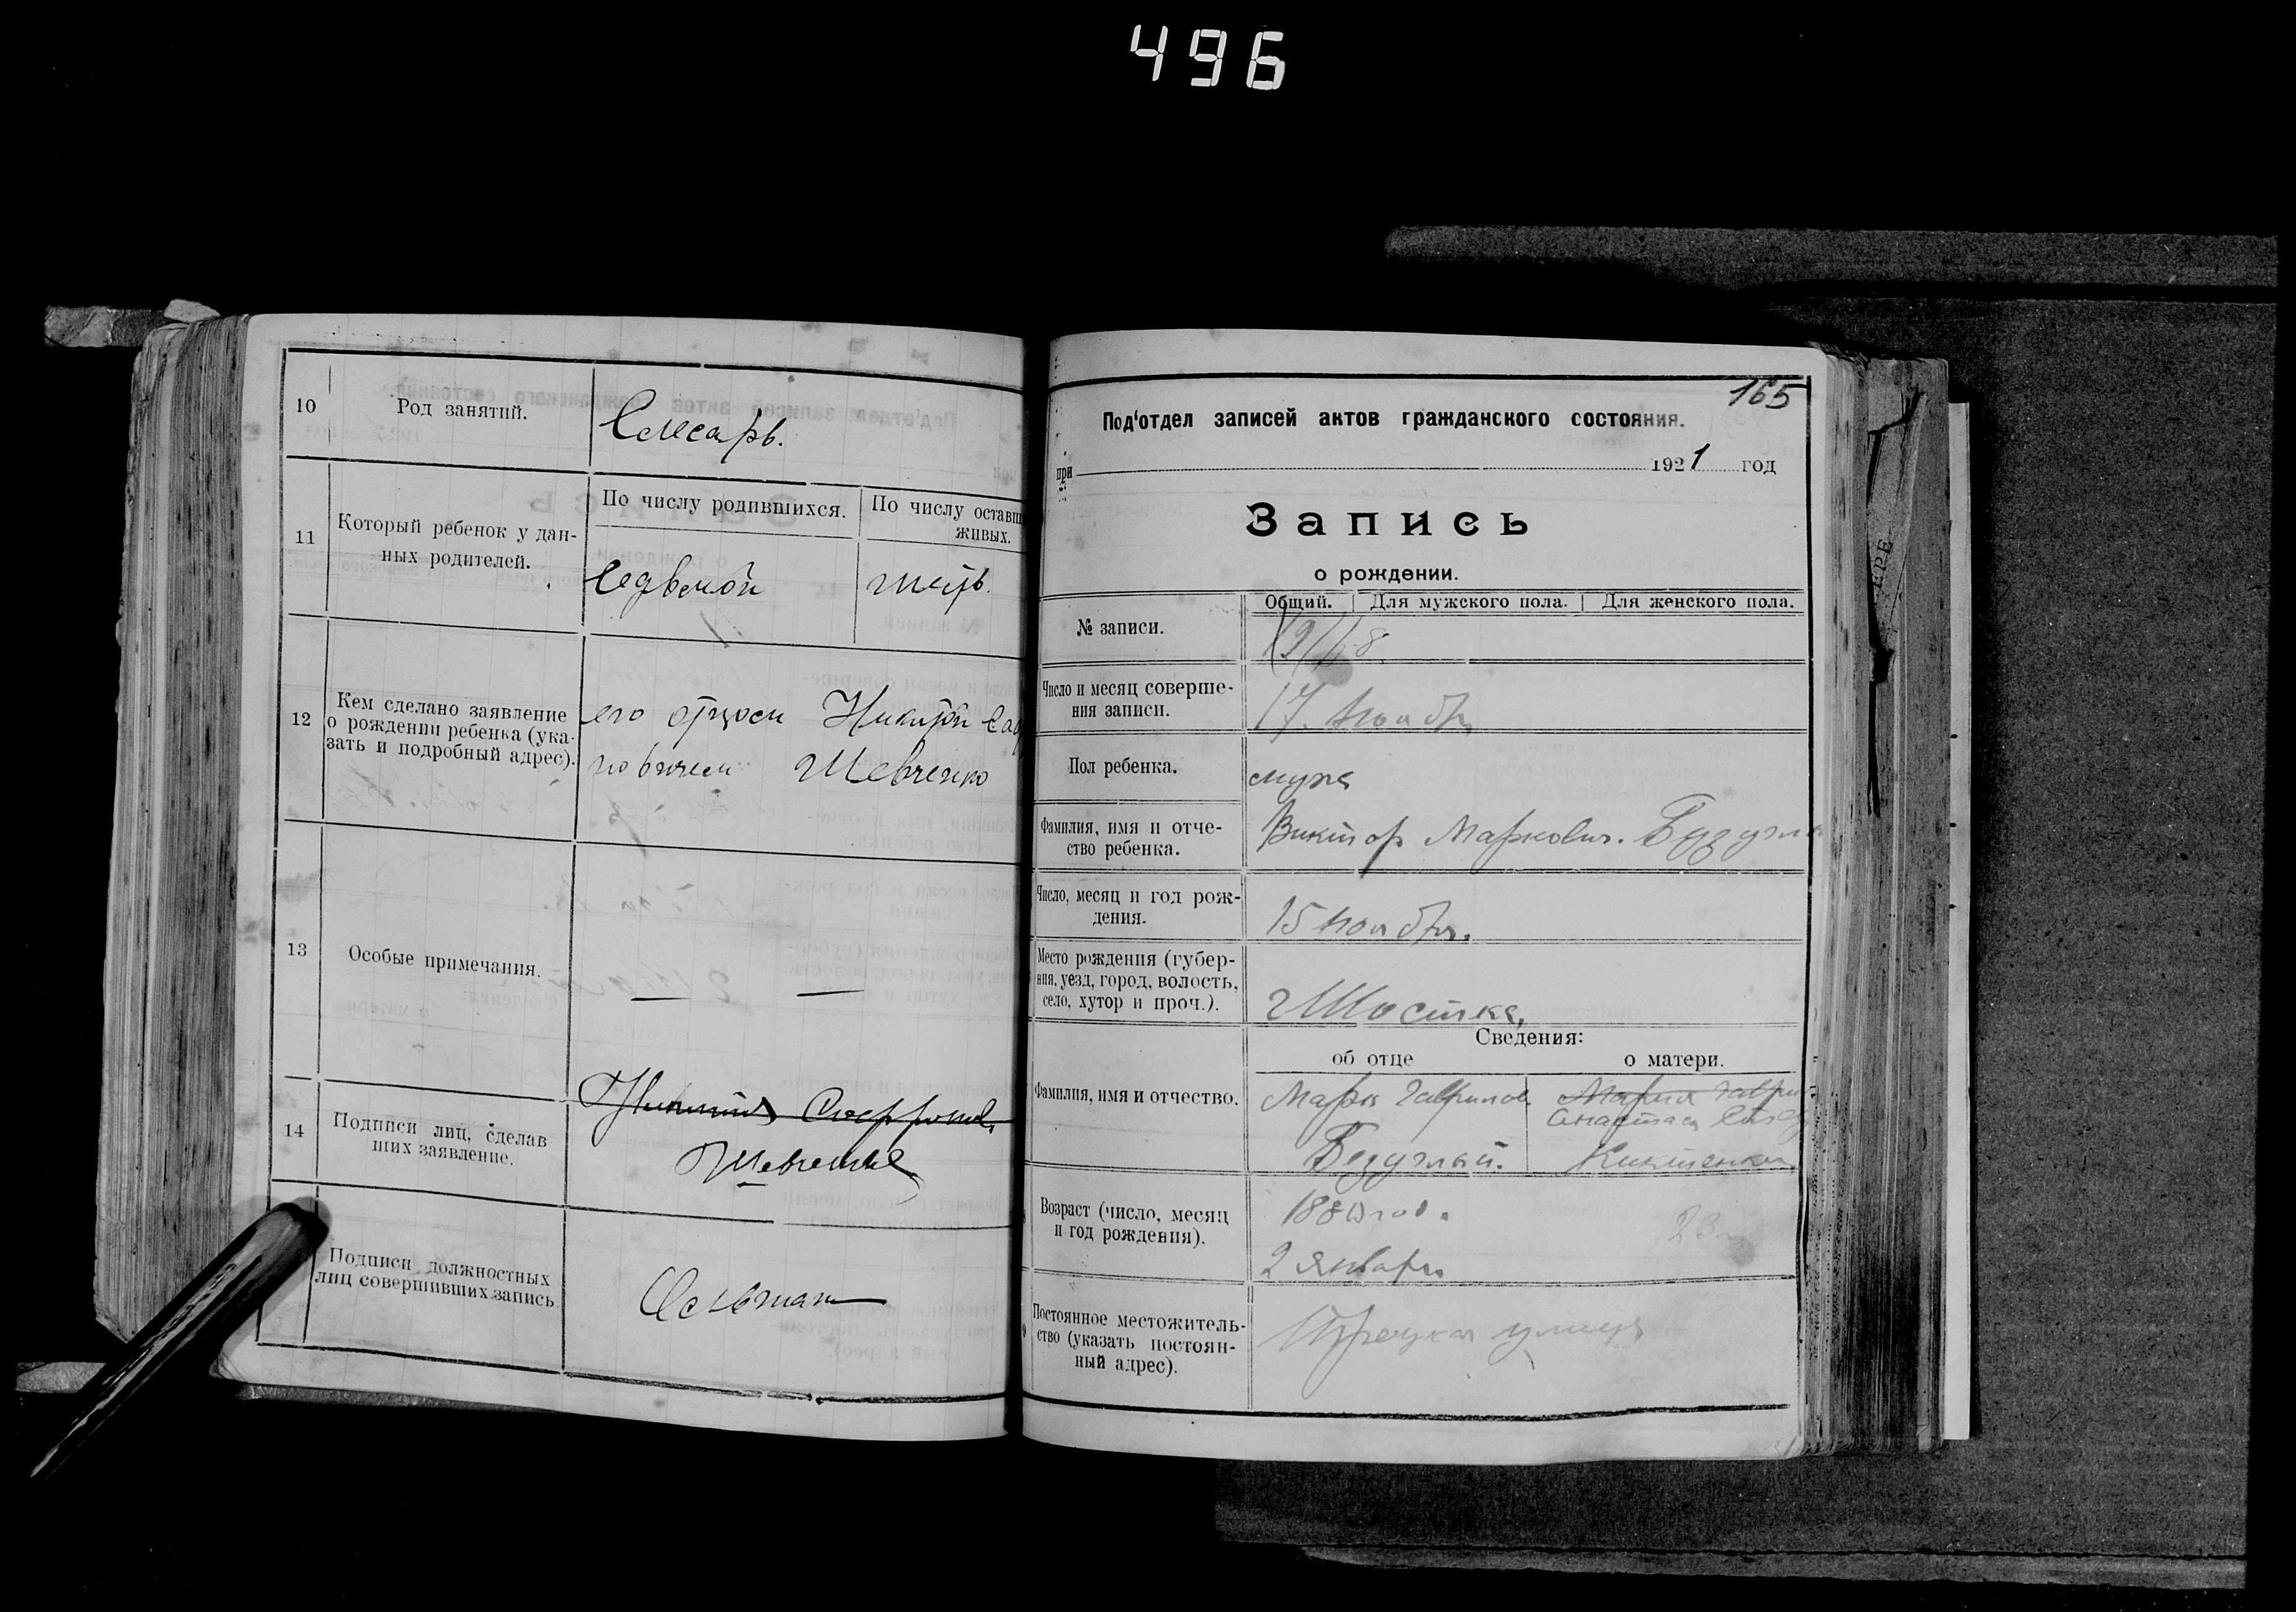 496
10
Род занятий.
Слесарь.
11
Который ребенок у дан-
ных родителей.
По числу родившихся.
По числу оставш
живых.
седьмой
12
Кем сделано заявление
о рождении ребенка (ука-
зать и подробный адрес).
его отцом Никитой
Шевченко
13
Особые примечания.
— —
14
Подписи лиц, сделав
ших заявление.
Шевченко
Подписи должностных
лиц совершивших запись.
165
Под'отдел записей актов гражданского состояния.
при 1921 год
Запись
о рождении.
Общий. Для мужского пола. Для женского пола.
№ записи.
Число и месяц соверше-
ния записи.
17 ноября
Пол ребенка.
муж
Фамилия, имя и отче-
ство ребенка.
Виктор Маркович.
Число, месяц и год рож-
дения.
15 ноября.
Место рождения (губер-
ния, уезд, город, волость,
село, хутор и проч.).
г Шостка,
Сведения:
об отце о матери.
Фамилия, имя и отчество.
Марк Гаврилов.
Безуглый.
Мария Гаври
Анастасия
Возраст (число, месяц
и год рождения).
2 января
23
Постоянное местожитель-
ство (указать постоян-
ный адрес).
улица